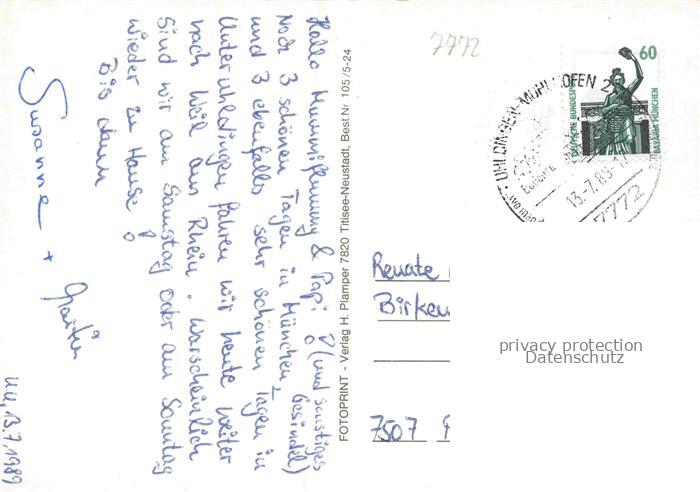 Hallo Mummiflummy & Papi! (und sonstiges Gesindel)
Nach 3 schönen Tagen in München
und 3 ebenfalls sehr schönen Tagen in
Unteruhldingen fahren wir heute weiter
nach Weil am Rhein. Warscheinlich
sind wir am Samstag oder am Sonntag
wieder zu Hause!
Bis dann
Susanne + Martin
UU, 13.7.1989
FOTOPRINT - Verlag H. Plamper 7820 Titisee-Neustadt, Best.Nr 105/5-24
7772
60
DEUTSCHE BUNDESPOST
BAVARIA MÜNCHEN
UHLDINGEN-MÜHLHOFEN 2
13.-7.89-17
7772
Renate
Birken
7507
privacy protection
Datenschutz